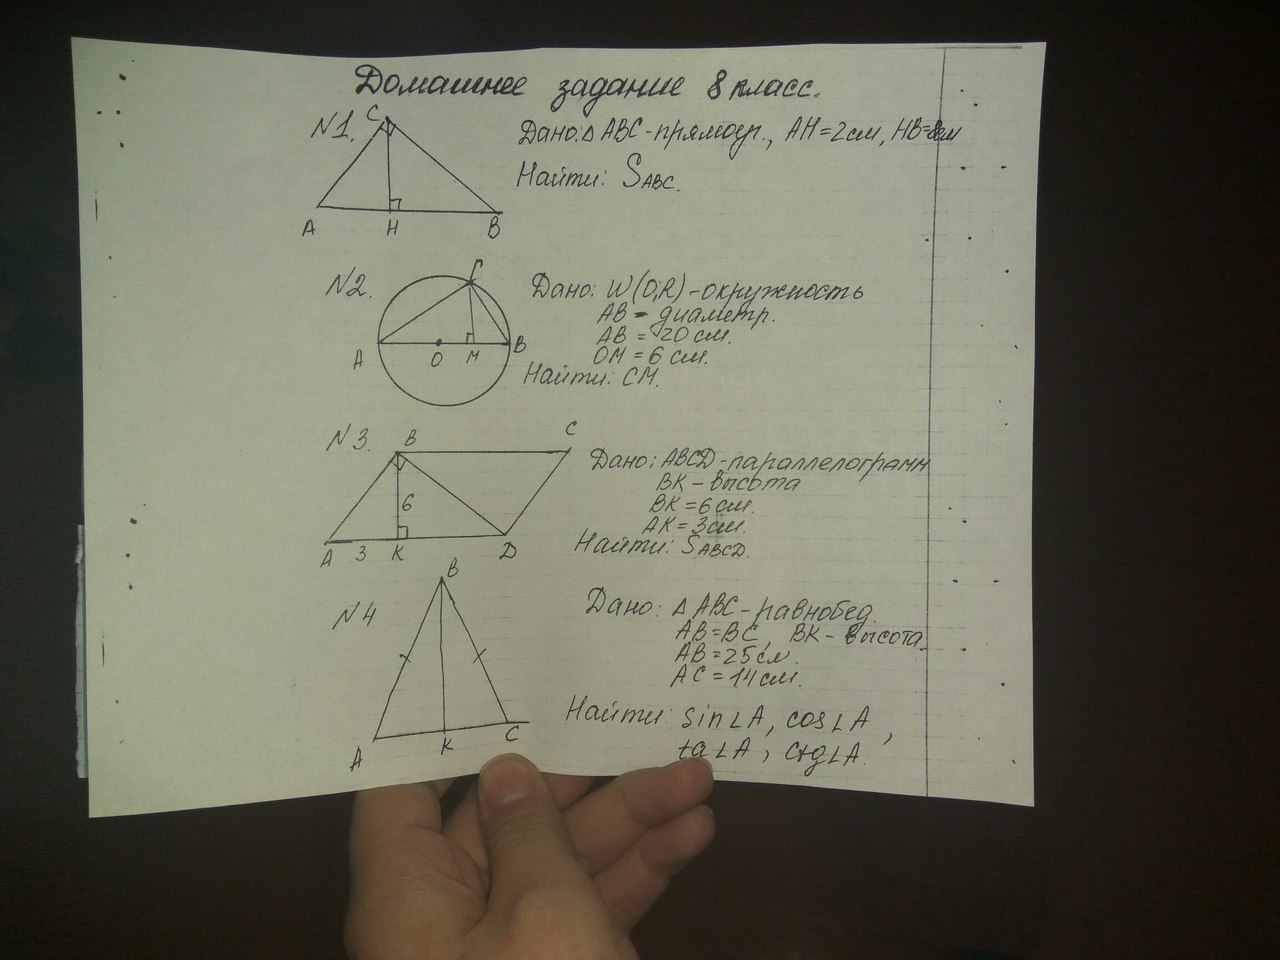 Домашнее задание 8 класс.
№1.
C
A
H
B
Дано: △ABC - прямоуг., AH = 2см, HB = 8см
Найти: S ABC.
№2.
C
A
O
M
B
Дано: W(O,R) - окружность
AB - диаметр.
AB = 20 см.
OM = 6 см.
Найти: CM.
№3.
B
C
6
A
3
K
D
Дано: ABCD - параллелограмм
BK - высота
BK = 6 см.
AK = 3 см.
Найти: S ABCD.
№4
B
A
K
C
Дано: △ABC - равнобед.
AB = BC, BK - высота.
AB = 25 см.
AC = 14 см.
Найти: sin∠A, cos∠A,
tg∠A, ctg∠A.